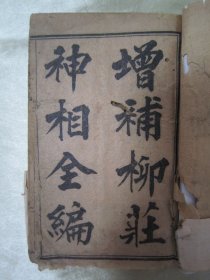 增補柳莊
神相全編